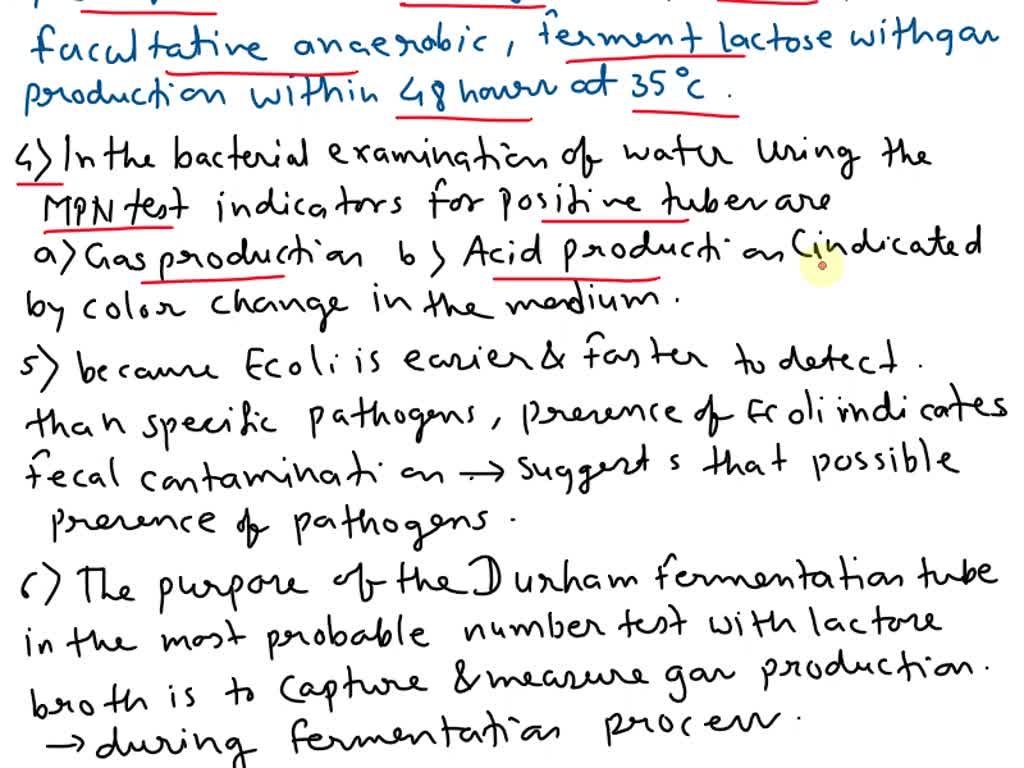 facultative anaerobic, ferment lactose with gas
production within 48 hours at 35°c.
4) In the bacterial examination of water using the
MPN test indicators for positive tubes are
a) Gas production b) Acid production (indicated
by color change in the medium.
5) because Ecoli is easier & faster to detect.
than specific pathogens, presence of Ecoli indicates
fecal contamination → suggests that possible
presence of pathogens.
c) The purpose of the Durham fermentation tube
in the most probable number test with lactose
broth is to capture & measure gas production.
→ during fermentation process.